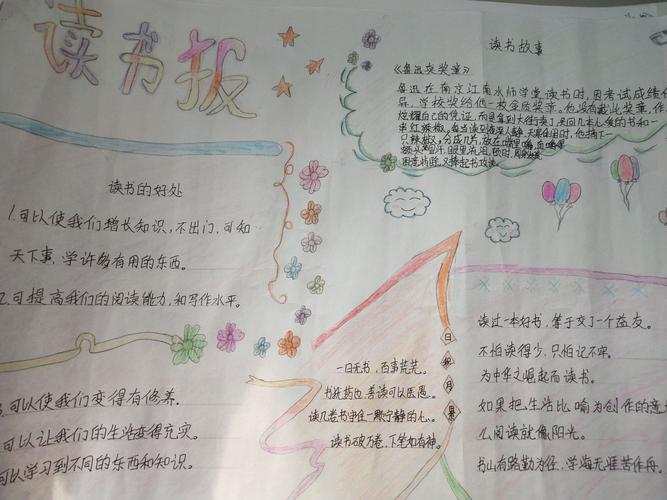 读书报
读书的好处
1.可以使我们增长知识,不出门,可知
天下事,学许多有用的东西。
2.可提高我们的阅读能力,和写作水平。
可以使我们变得有修养。
可以让我们的生活变得充实。
可以学习到不同的东西和知识。
读书故事
《鲁迅卖奖章》
鲁迅在南京江南水师学堂读书时,因考试成绩
,学校奖给他一枚金质奖章。他没有戴此奖章,作
炫耀自己的凭证,而是拿到大街卖了,买回几本心爱的书和一
串红辣椒。每当读到夜深人静、天寒
只辣椒,分成几片,放在嘴里嚼,
额头冒汗,眼里流泪,
,又捧起书攻读。
日积月累
一日无书,百事荒芜。
书犹药也,善读可以医愚。
读几卷书守住一颗宁静的心。
读书破万卷,下笔如有神。
读过一本好书,等于交了一个益友。
不怕读得少,只怕记不牢。
为中华之崛起而读书。
如果把生活比喻为创作的意
么阅读就像阳光。
书山有路勤为径,学海无涯苦作舟。